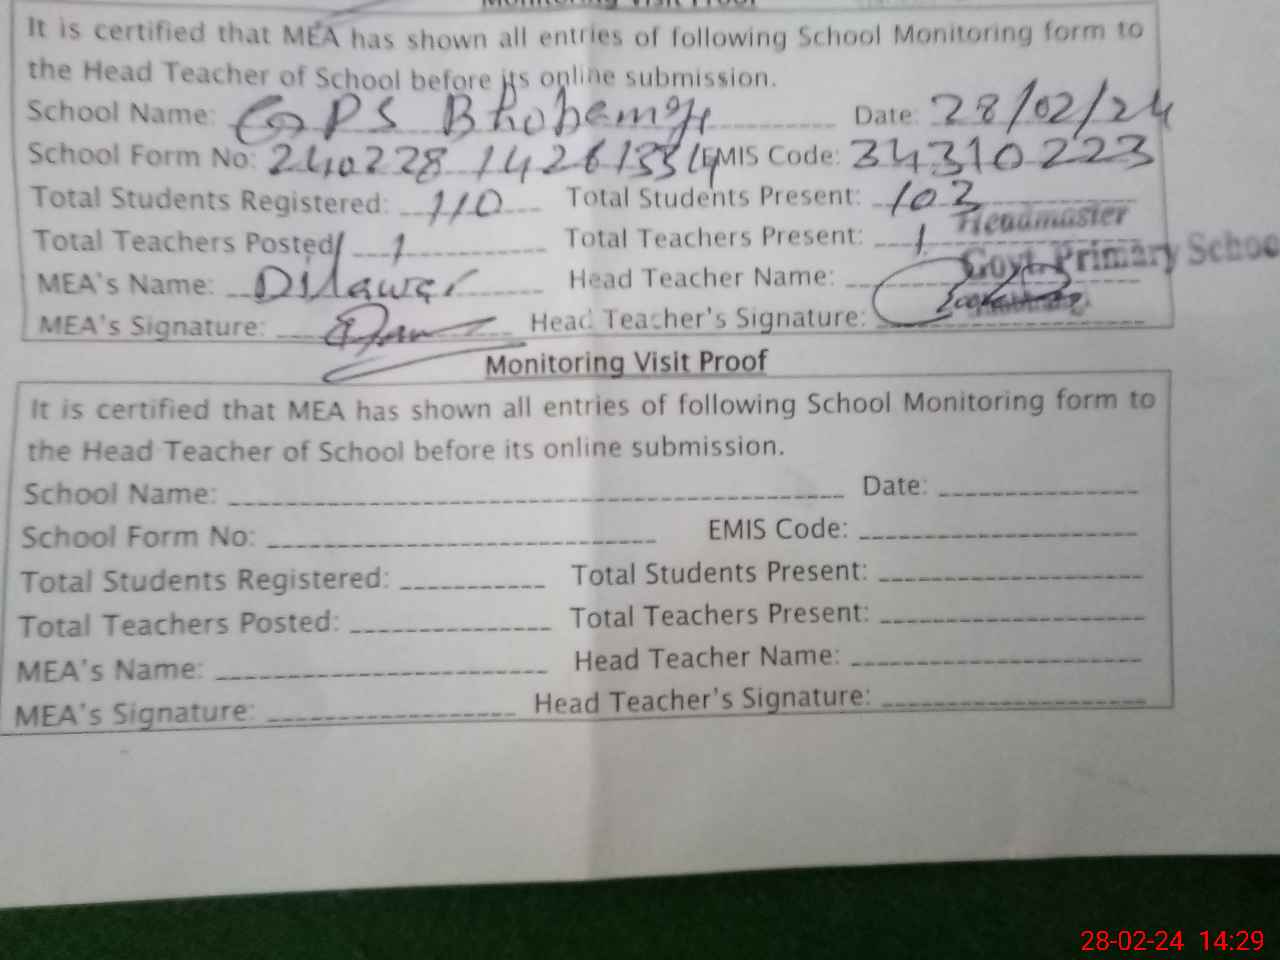 Monitoring Visit Proof
It is certified that MEA has shown all entries of following School Monitoring form to
the Head Teacher of School before its online submission.
School Name: GPS Date: 28/02/24
School Form No: 240228 EMIS Code: 34310223
Total Students Registered: 110 Total Students Present: 103
Headmaster
Total Teachers Posted: 1 Total Teachers Present: 1
Govt. Primary School
MEA's Name: Dilawar Head Teacher Name:
MEA's Signature: Head Teacher's Signature:
Monitoring Visit Proof
It is certified that MEA has shown all entries of following School Monitoring form to
the Head Teacher of School before its online submission.
School Name: Date:
School Form No: EMIS Code:
Total Students Registered: Total Students Present:
Total Teachers Posted: Total Teachers Present:
MEA's Name: Head Teacher Name:
MEA's Signature: Head Teacher's Signature:
28-02-24 14:29